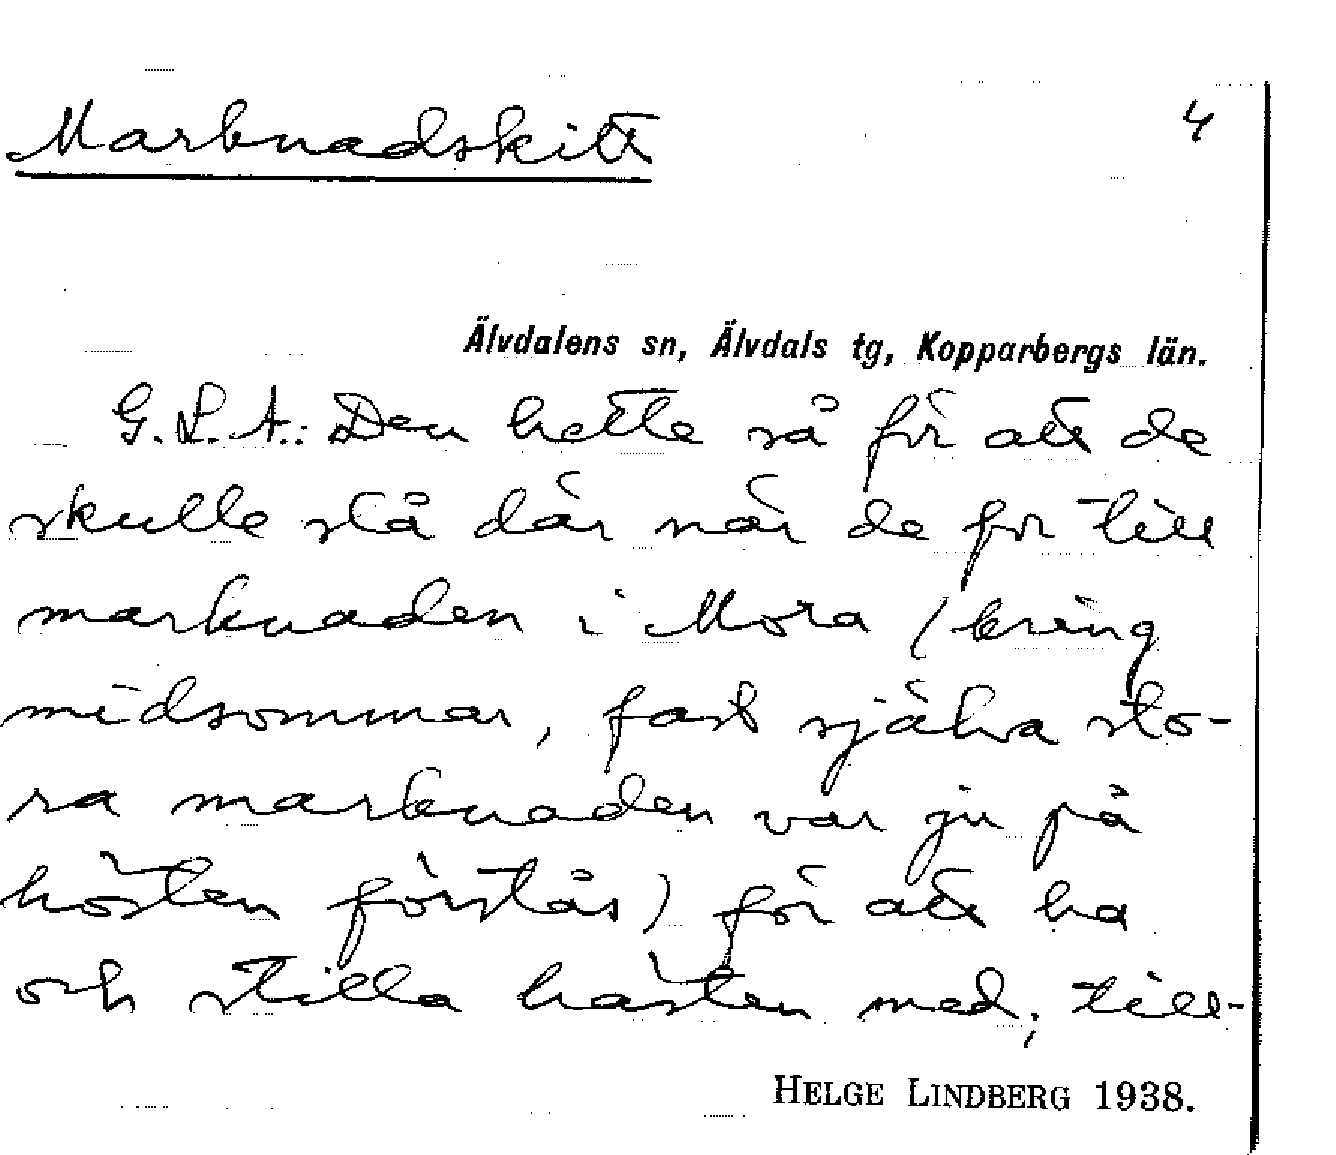 Marknadskitt 4
Älvdalens sn, Älvdals tg, Kopparbergs län.
G. L. A.: Den hette så för att de
skulle stå där när de for till
marknaden i Mora (kring
midsommar, fast själva sto-
ra marknaden var ju på
hösten förstås) för att ha
och stilla hästen med; till-
HELGE LINDBERG 1938.